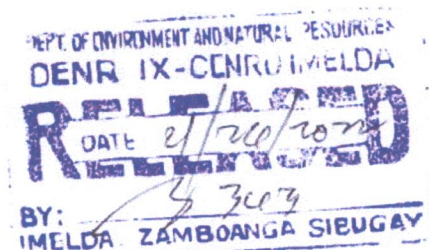 DEPT. OF ENVIRONMENT AND NATURAL RESOURCES
DENR IX-CENRO IMELDA
RELEASED
DATE
BY:
IMELDA ZAMBOANGA SIBUGAY